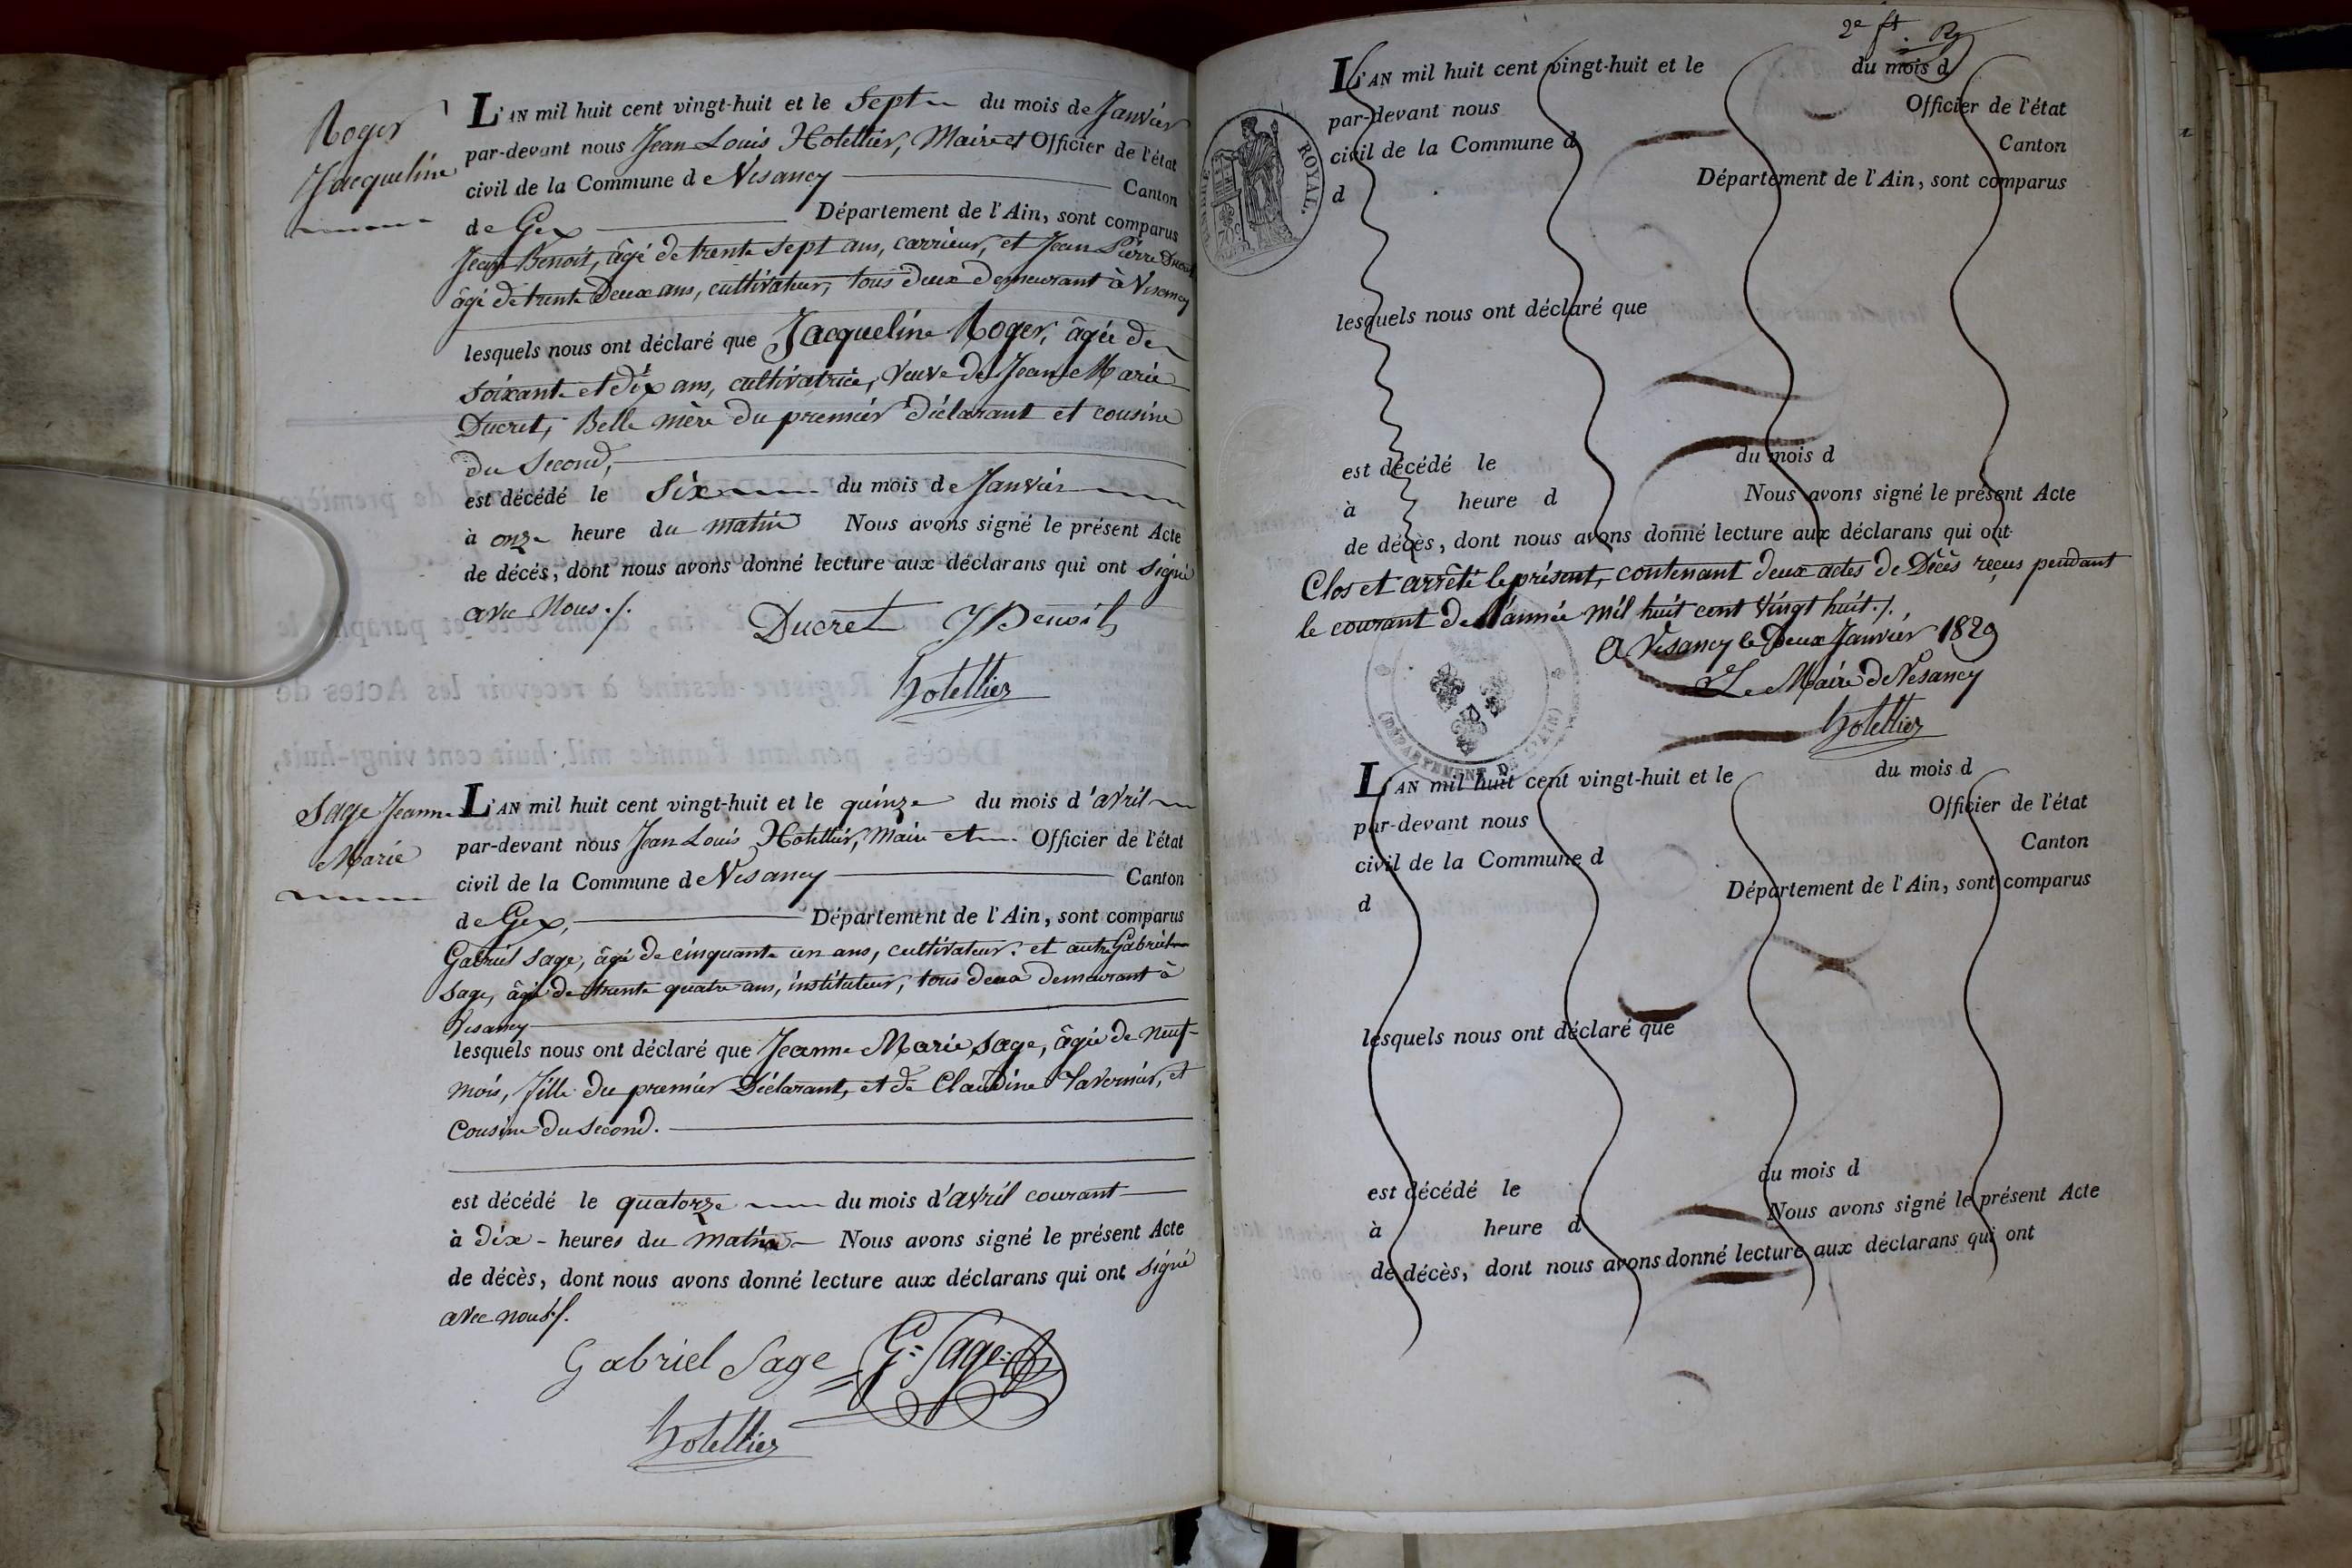 Roger
Jacqueline
L'AN mil huit cent vingt-huit et le Sept du mois de Janvier
par-devant nous Jean Louis Hotellier, Maire et Officier de l'état
civil de la Commune de Vesancy Canton
de Gex Département de l'Ain, sont comparus
Jean Benoit, âgé de trente sept ans, carrieur, et Jean Pierre Ducret
âgé de trente Deux ans, cultivateur, tous deux demeurant à Vesancy
lesquels nous ont déclaré que Jacqueline Roger, âgée de
soixante et dix ans, cultivatrice, Veuve de Jean Marie
Ducret, Belle mère du premier déclarant et cousine
du Second,
est décédé le Six du mois de Janvier
à onze heure du matin Nous avons signé le présent Acte
de décés, dont nous avons donné lecture aux déclarans qui ont signé
avec Nous ./.
Ducret J Benoit
hotellier
Sage Jeanne
Marie
L'AN mil huit cent vingt-huit et le quinze du mois d'avril
par-devant nous Jean Louis Hotellier, Maire et Officier de l'état
civil de la Commune de Vesancy Canton
de Gex, Département de l'Ain, sont comparus
Gabriel Sage, âgé de cinquante un ans, cultivateur. et autre Gabriel
Sage, âgé de trente quatre ans, instituteur, tous deux demeurant à
Vesancy
lesquels nous ont déclaré que Jeanne Marie Sage, âgée de neuf
mois, fille du premier Déclarant, et de Claudine Tavernier, et
Cousine du Second.
est décédé le quatorze du mois d'avril courant
à dix - heures du matin Nous avons signé le présent Acte
de décès, dont nous avons donné lecture aux déclarans qui ont signé
avec nous ./.
Gabriel Sage G: Sage
hotellier
2e ft.
L'AN mil huit cent vingt-huit et le du mois d
par-devant nous Officier de l'état
civil de la Commune d Canton
d Département de l'Ain, sont comparus
TIMBRE ROYAL.
lesquels nous ont déclaré que
est décédé le du mois d
à heure d Nous avons signé le présent Acte
de décès, dont nous avons donné lecture aux déclarans qui ont
Clos et arrêté le présent, contenant deux actes de Décès reçus pendant
le courant de l'année mil huit cent vingt huit ./.
A Vesancy le Deux Janvier 1829
Le Maire de Vesancy
hotellier
(DÉPARTEMENT DE L'AIN)
L'AN mil huit cent vingt-huit et le du mois d
par-devant nous Officier de l'état
civil de la Commune d Canton
d Département de l'Ain, sont comparus
lesquels nous ont déclaré que
est décédé le du mois d
à heure d Nous avons signé le présent Acte
de décès, dont nous avons donné lecture aux déclarans qui ont